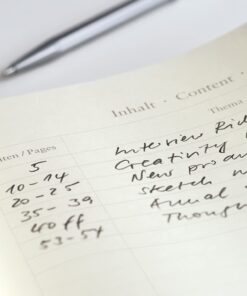 Inhalt · Content
ten / Pages Thema
5 Interview Ric
10-14 Creativity
20-25 New pro
35-39 Sketch
40ff Annual
53-54 Though